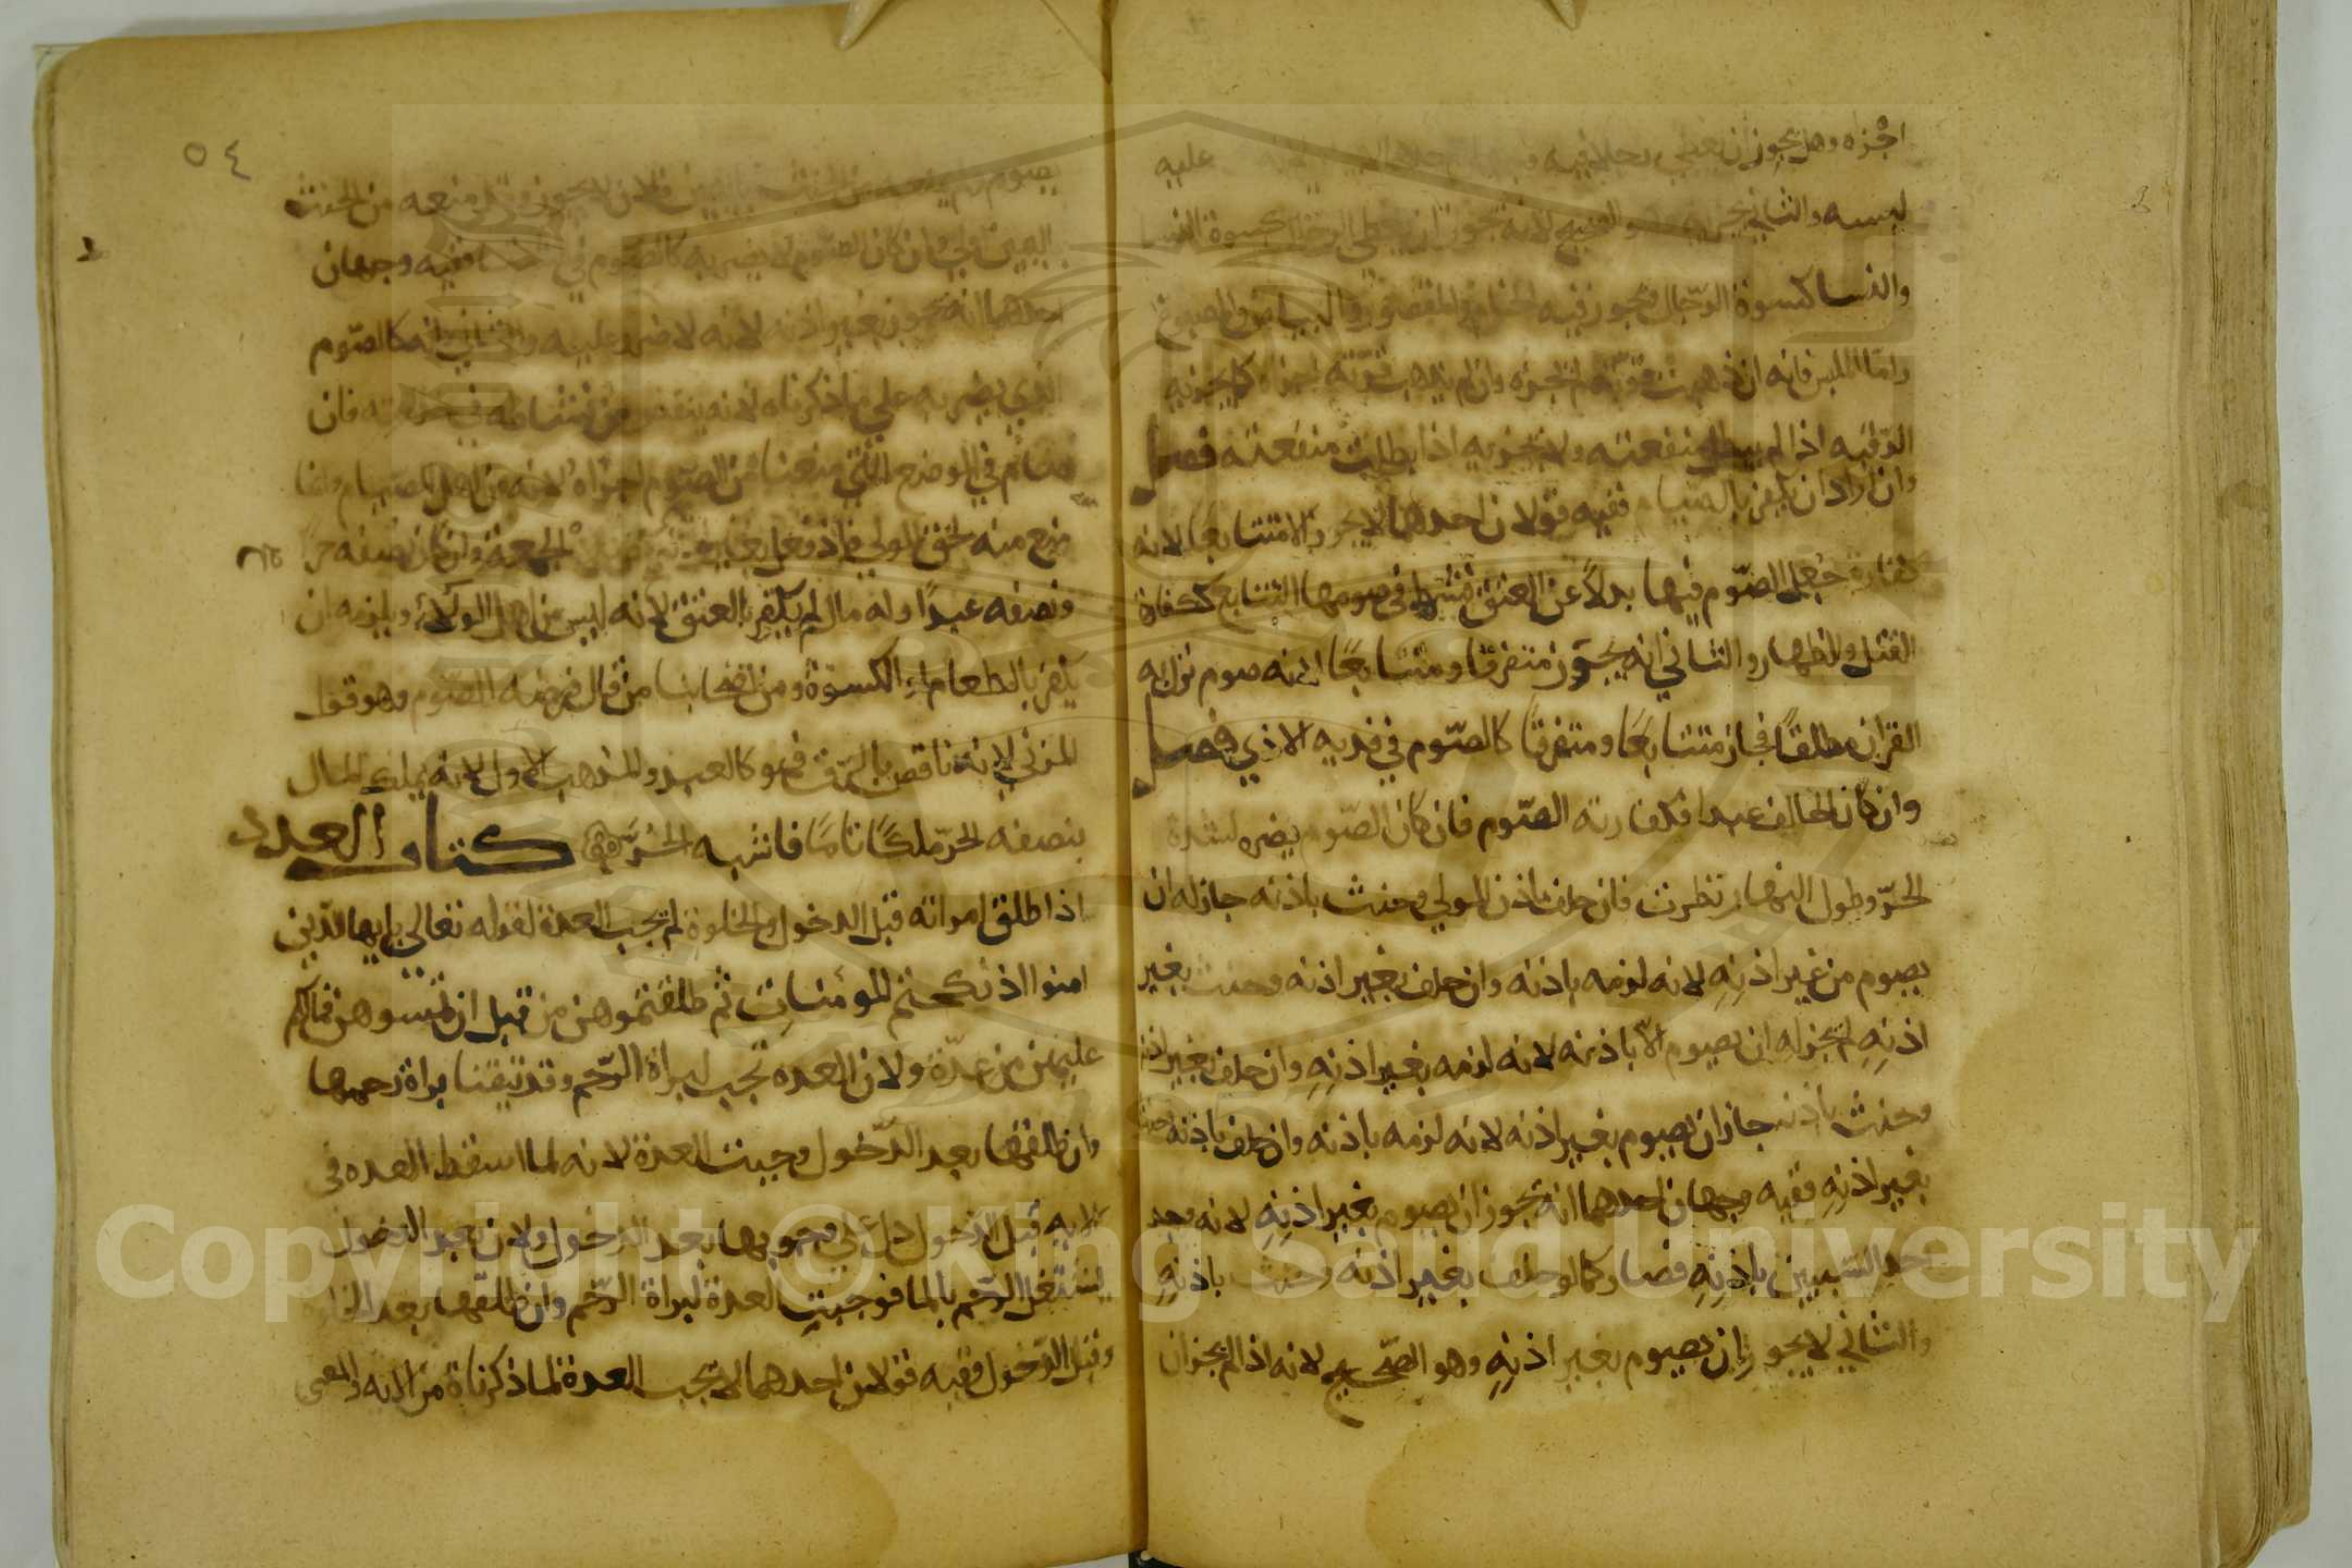 اجزه وهل يجوز ان يعطي رجلا فيه عليه
لبسه والثاني يجزيه وهو الصحيح لانه يجوز ان يعطي الرجال كسوة النسا
والنسا كسوة الرجال ويجوز فيه الخام والمقصور والبياض والمصبوغ
واما الملبس فانه ان ذهبت قوته لم يجزه وان لم يذهب قوته اجزاه كما يجزيه
الرقبه اذا لم يبطل منفعته ولا يجزيه اذا بطلت منفعته فصل
وان اراد ان يكفر بالصيام ففيه قولان احدهما لا يجوز الا متتابعا لانه
كفارة جُعل الصّوم فيها بدلاً عن العتق فشرط في صومها التتابع ككفارة
القتل والظهار والثاني انه يجوز متفرقا ومتتابعًا لانه صوم نزل به
القران مطلقًا فجاز متتابعًا ومتفرقًا كالصّوم في فديه الاذي فصل
وان كان الحالف عبدا فكفارته الصّوم فان كان الصّوم يضره لشدة
الحرّ وطول النهار نظرت فان حلف باذن المولي وحنث باذنه جاز له ان
يصوم من غير اذنِهِ لانه لزمه باذنه وان حلف بغير اذنه وحنث بغير
اذنِهِ لم يجز له ان يصوم الاّ باذنه لانه لزمه بغير اذنِهِ وان حلف بغير اذنه
وحنث باذنه جاز ان يصوم بغير اذنه لانه لزمه باذنه وان حلف باذنه وحنث
بغير اذنِهِ ففيه وجهان احدهما انه يجوز ان يصوم بغير اذنِهِ لانه وجد
احد السّببين باذنِهِ فصار كما لو حلف بغير اذنه وحنث باذنِهِ
والثاني لا يجوز ان يصوم بغير اذنِهِ وهو الصّحيح لانه اذا لم يجز ان
٥٤
يصوم ولم يمنعه من الحنث باليمين فلان لا يجوز وقد منعه من الحنث
باليمين اولي وان كان الصّوم لا يضر به كالصّوم في ففيه وجهان
احدهما انه يجوز بغير اذنه لانه لا ضرر عليه والثاني انه كالصّوم
الذي يضر به علي ما ذكرناه لانه ينقص من نشاطه في خدمته فان
صام في الموضع الذي منعناه من الصّوم اجزاه لانه من اهل الصيام وانما
منع منه لحق المولي فاذا فعل بغير الجمعة وان كان نصفه حرًا
ونصفه عبدًا وله مال لم يكفر بالعتق لانه ليس من اهل الولاء ويلزمه ان
يكفر بالطعام او الكسوة ومن اصحابنا من قال فرضه الصّوم وهو قول
المزني لانه ناقص بالرق فهو كالعبد والمذهب الاول لانه يملك المال
بنصفه الحرّ ملكًا تامًا فاشبه الحُرّ كتاب العدد
اذا طلق امراته قبل الدخول والخلوة لم يجب العدة لقوله تعالي يايها الذين
امنوا اذا نكحتم المؤمنات ثم طلقتموهن من قبل ان تمسوهن فما لكم
عليهن من عدّة ولان العده تجب لبراة الرّحم وقد تيقنا براة رحمها
وان طلقها بعد الدّخول وجبت العدة لانه لما اسقط العده في
الايه قبل الدّخول دل علي وجوبها بعد الدخول ولان بعد الدخول
يشتغل الرّحم بالما فوجبتِ العدة لبراة الرّحم وان طلقها بعد الخلوه
وقبل الدّخول ففيه قولان احدهما لا تجب العدة لما ذكرناه من الايه والمعني
Copyright © King Saud University